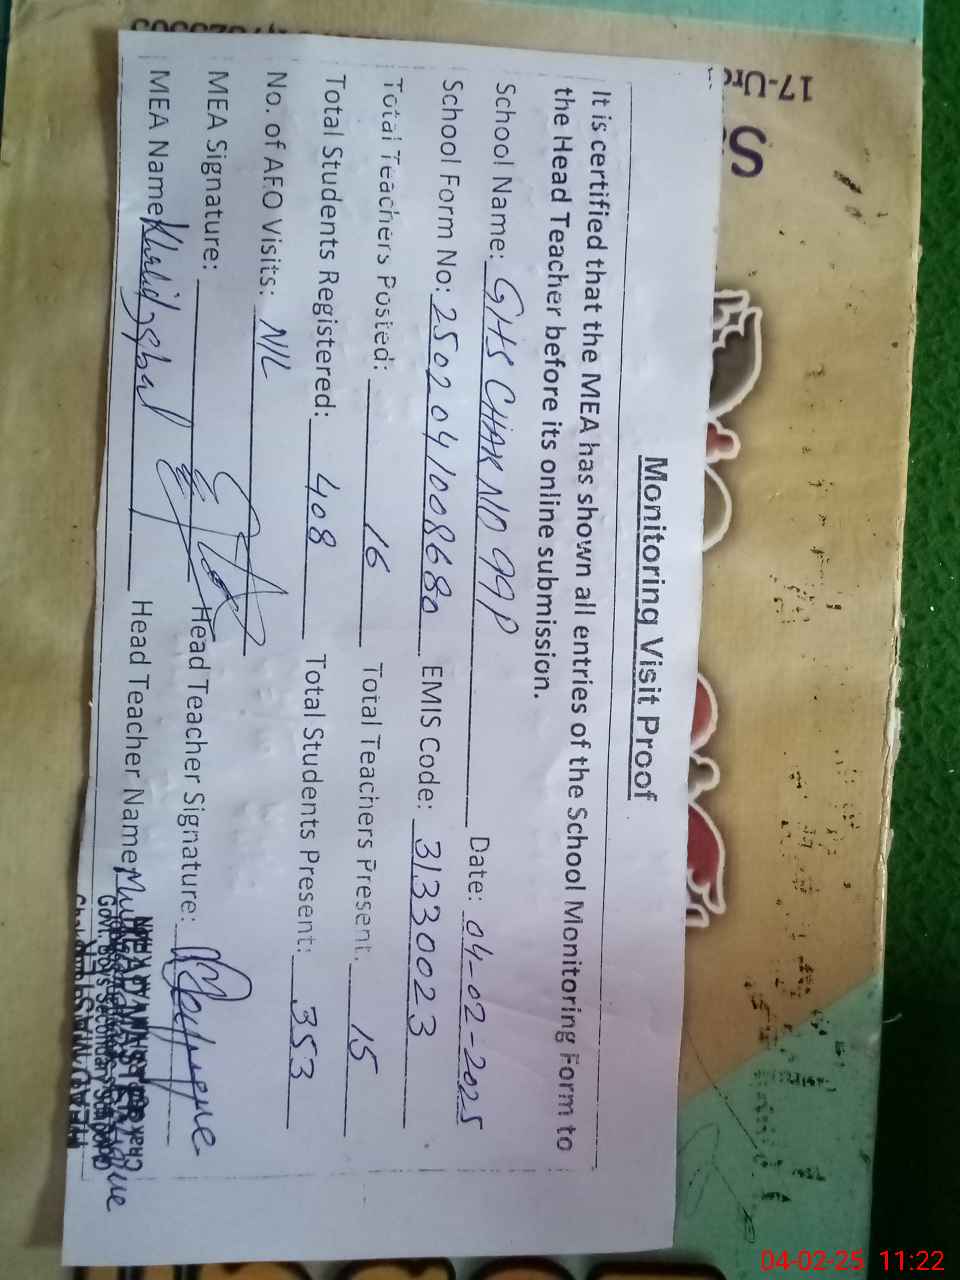 Monitoring Visit Proof
It is certified that the MEA has shown all entries of the School Monitoring Form to
the Head Teacher before its online submission.
School Name: GHS CHAK NO 99P Date: 04-02-2025
School Form No: 25020410086680 EMIS Code: 31330023
Total Teachers Posted: 16 Total Teachers Present: 15
Total Students Registered: 408 Total Students Present: 353
No. of AEO Visits: NIL
MEA Signature: Head Teacher Signature:
MEA Name: Khalid Iqbal Head Teacher Name:
HEADMASTER
Govt. Boys Secondary School
17-Urd
04-02-25 11:22